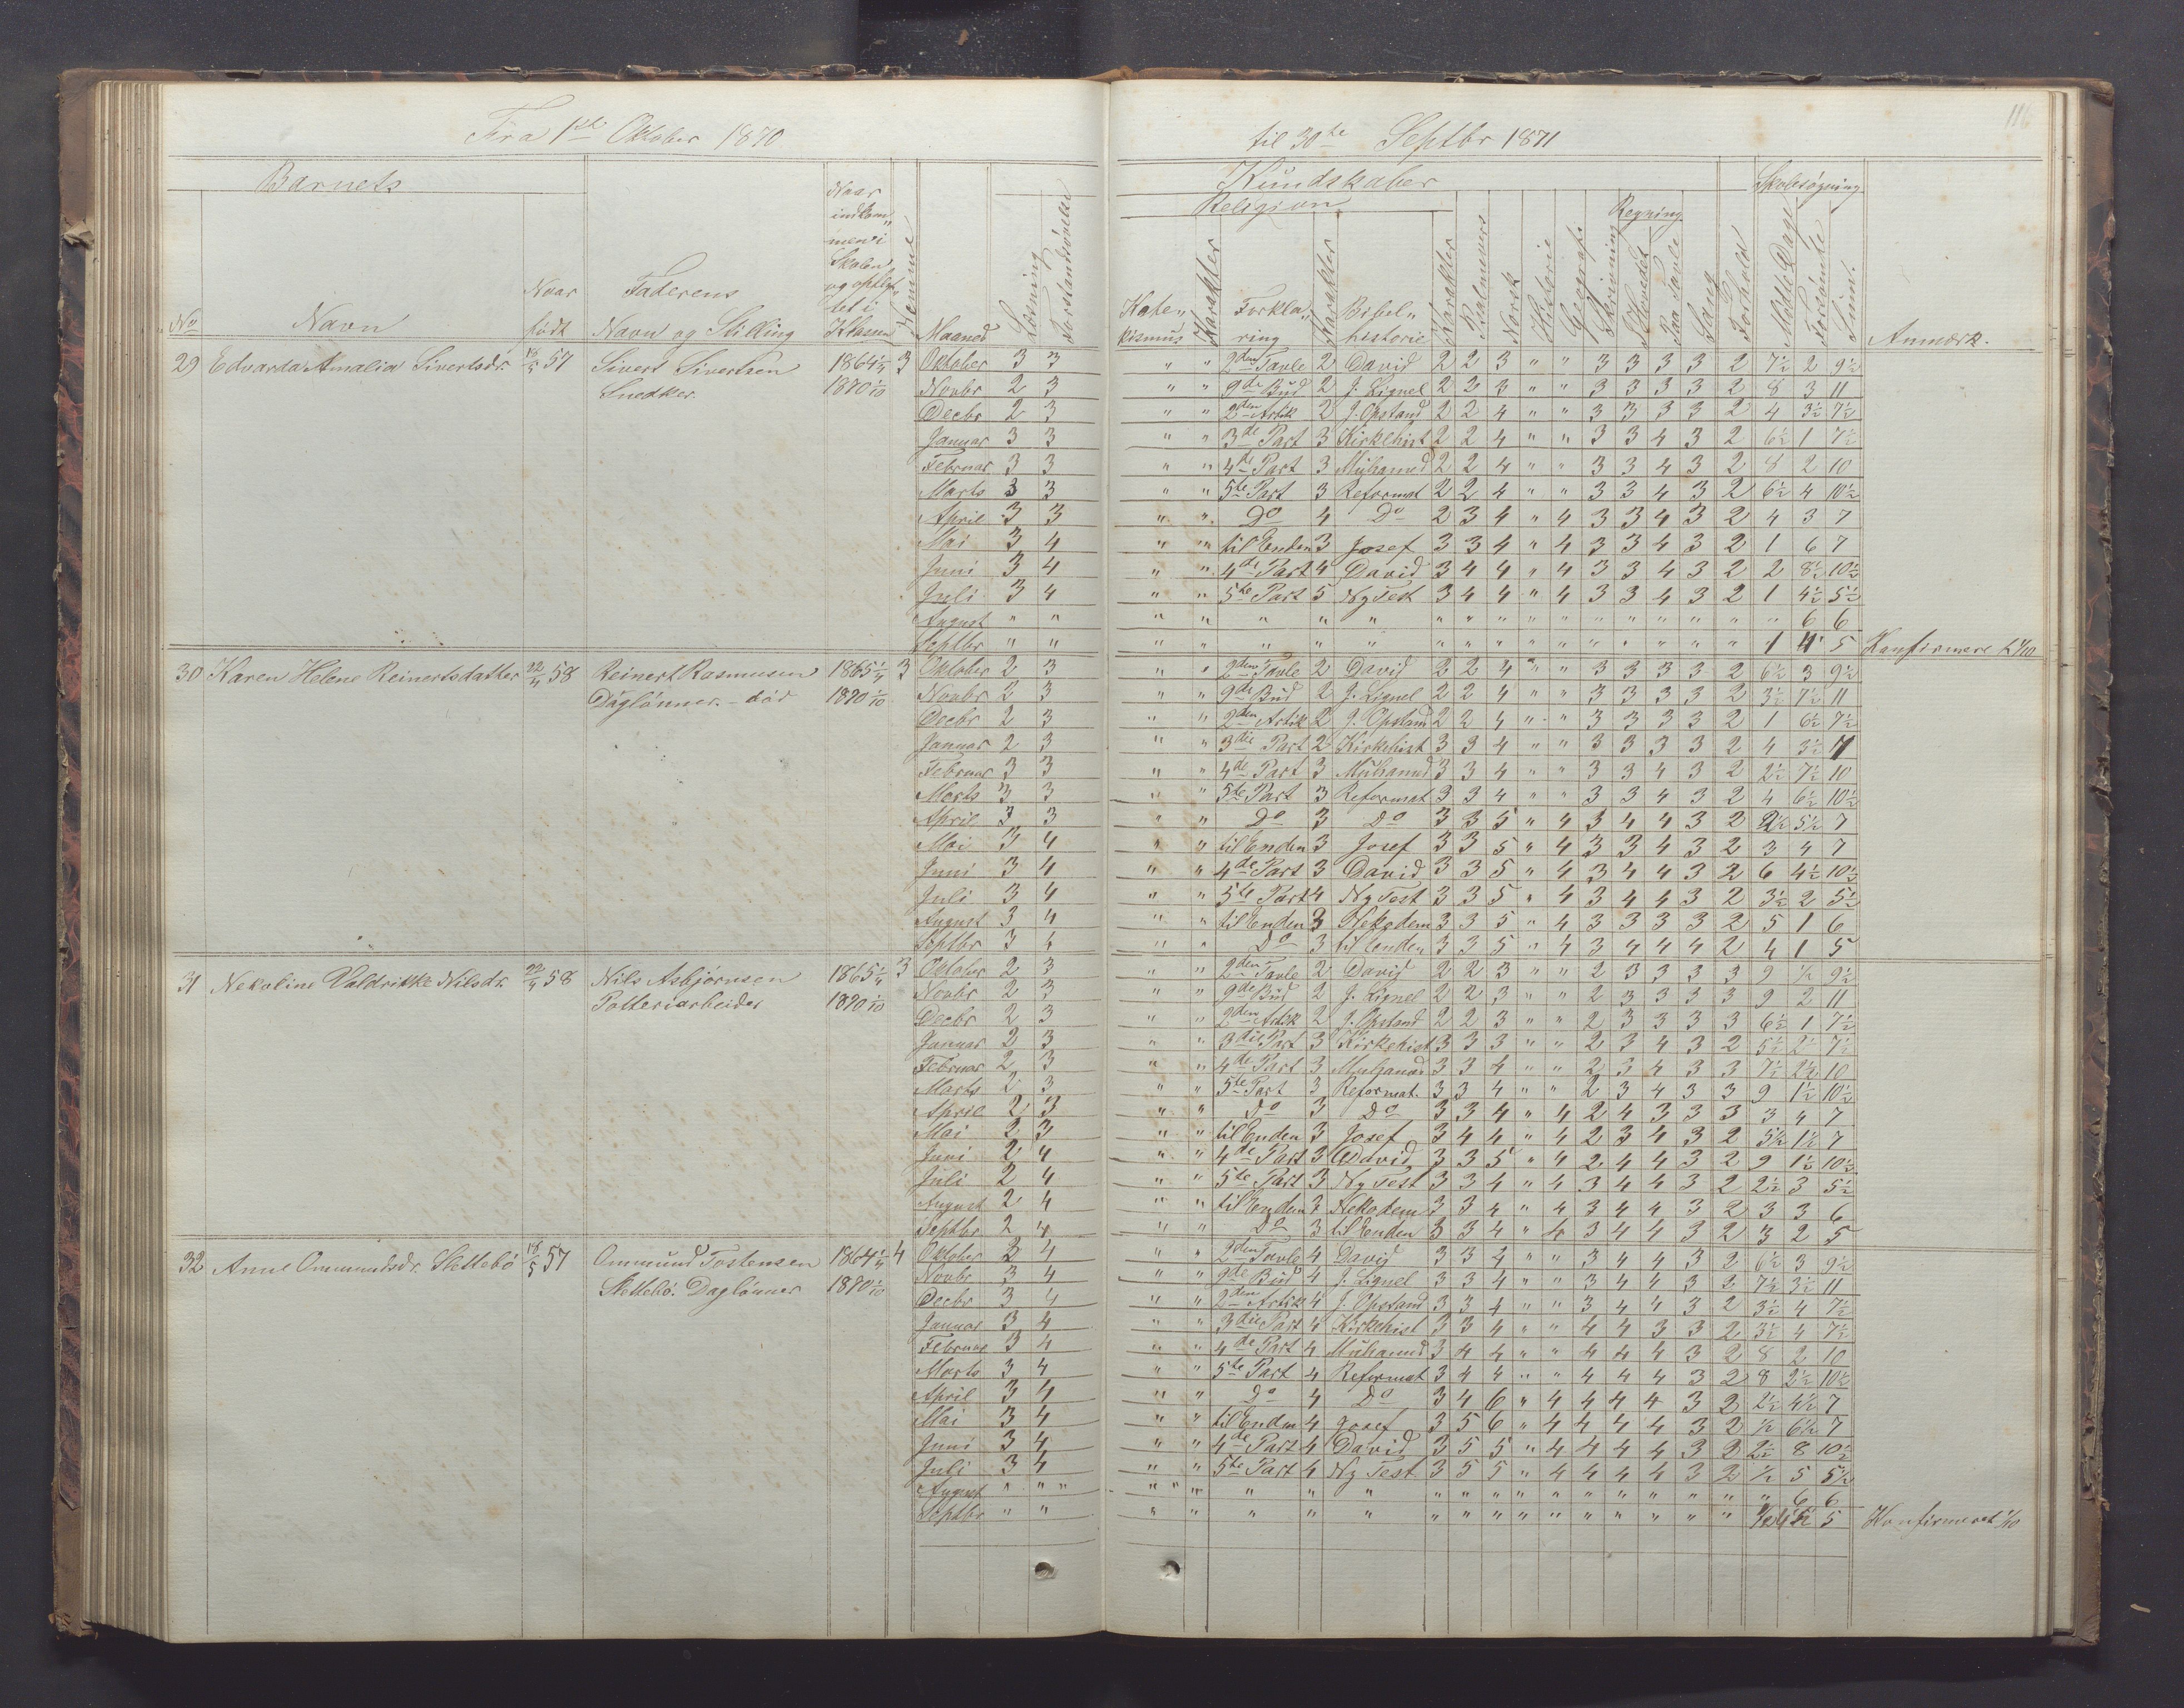 116
Fra 1ste Oktober 1870 til 30te Septbr 1871
Barnets
No
Navn
Naar født
Faderens Navn og Stilling
Naar indkommen i Skolen og opflyttet i Klassen
Nemme
Maaned
Læsning
Forstandsøvelse
Kundskaber
Religion
Katekismus
Karakter
Forklaring
Karakter
Bibelhistorie
Karakter
Psalmevers
Norsk
Historie
Geografi
Skrivning
Regning
I Hovedet
Paa Tavle
Sang
Forhold
Skolesøgning
Mødte Dage
Forsømte
Sum.
Anmærk.
29 Edvarda Amalia Sivertsdr. 57 Sivert Sivertsen 1864 3 Oktober 3 3 " " 2den Tavle 2 David 2 2 3 " " 3 3 3 3 2 7½ 2 9½
Snedker 1870 1/10 Novbr 2 3 " " 9de Bud 2 J. Lignel 2 2 3 " " 3 3 3 3 2 8 3 11
Decbr 2 3 " " 2den Artik 2 J. Opstand 2 2 4 " " 3 3 3 3 2 4 3½ 7½
Januar 3 3 " " 3de Part 3 Kirkehist 2 2 4 " " 3 3 4 3 2 6½ 1 7½
Februar 3 3 " " 4de Part 3 Muhamed 2 2 4 " " 3 3 4 3 2 8 2 10
Marts 3 3 " " 5te Part 3 Reformat 2 2 4 " " 3 3 4 3 2 6½ 4 10½
April 3 3 " " Do 4 Do 2 3 4 " 4 3 3 4 3 2 4 3 7
Mai 3 4 " " til Enden 3 Josef 3 3 4 " 4 3 3 4 3 2 1 6 7
Juni 3 4 " " 4de Part 4 David 3 4 4 " 4 3 3 4 3 2 2 8½ 10½
Juli 3 4 " " 5te Part 5 Ny Test 3 4 4 " 4 3 3 4 3 2 1 4½ 5½
August " " " " " " " " " " " " " " " " " " 6 6
Septbr " " " " " " " " " " " " " " " " " 1 4 5
30 Karen Helene Reinertsdatter 22/4 58 Reinert Rasmusen 1865 1/4 3 Oktober 2 3 " " 2den Tavle 2 David 2 2 4 " " 3 3 3 3 2 6½ 3 9½
Daglønner. - død 1870 1/10 Novbr 2 3 " " 9de Bud 2 J. Lignel 2 2 4 " " 3 3 3 3 2 3½ 7½ 11
Decbr 2 3 " " 2den Artik 2 J. Opstand 2 2 4 " " 3 3 3 3 2 1 6½ 7½
Januar 2 3 " " 3die Part 2 Kirkehist 3 3 4 " " 3 3 3 3 2 4 3½
Februar 3 3 " " 4de Part 3 Muhamed 3 3 4 " " 3 3 4 3 2 2½ 7½ 10
Marts 3 3 " " 5te Part 3 Reformat 3 3 4 " " 3 3 4 3 2 4 6½ 10½
April 3 3 " " Do 3 Do 3 3 5 " 4 3 4 4 3 2 5½ 7
Mai 3 4 " " til Enden 3 Josef 3 3 5 " 4 3 3 4 3 2 3 4 7
Juni 3 4 " " 4de Part 3 David 3 3 5 " 4 3 4 4 3 2 6 4½ 10½
Juli 3 4 " " 5te Part 4 Ny Test 3 3 5 " 4 3 4 4 3 2 3½ 2 5½
August 3 4 " " til Enden 3 Nekodem 3 3 5 " 4 3 3 3 3 2 5 1 6
Septbr 3 4 " " Do 3 til Enden 3 3 5 " 4 3 4 4 4 2 4 1 5
31 Nekoline Valdrikke Nilsdr. 22/4 58 Nils Asbjørnsen 1865 1/4 3 Oktober 2 3 " " 2den Tavle 2 David 2 2 3 " " 2 3 3 3 3 9 ½ 9½
Potteriarbeider 1870 1/10 Novbr 2 3 " " 9de Bud 2 J. Lignel 2 2 3 " " 2 3 3 3 3 9 2 11
Decbr 2 3 " " 2den Artik 2 J. Opstand 2 2 3 " " 2 3 3 3 3 6½ 1 7½
Januar 2 3 " " 3die Part 3 Kirkehist 3 3 3 " " 2 3 4 3 2 5½ 2 7½
Februar 2 3 " " 4de Part 3 Muhamed 3 3 4 " " 2 3 4 3 3 7½ 2½ 10
Marts 2 3 " " 5te Part 3 Reformat. 3 3 4 " " 2 3 4 3 3 9 1½ 10½
April 2 3 " " Do 3 Do 3 3 4 " 4 2 4 3 3 3 3 4 7
Mai 2 3 " " til Enden 3 Josef 3 4 4 " 4 2 3 4 3 2 5½ 1½ 7
Juni 2 4 " " 4de Part 3 David 3 3 5 " 4 2 4 4 3 2 9 1½ 10½
Juli 2 4 " " 5te Part 3 Ny Test 3 3 4 " 4 3 4 4 3 2 2½ 3 5½
August 2 4 " " til Enden 3 Nekodem 3 3 4 " 4 3 4 4 3 2 3 3 6
Septbr 2 4 " " Do 3 til Enden 3 3 4 " 4 3 4 4 3 2 3 2 5
Konfirmere
32 Anne Ommundsdr. Slettebø 18/5 57 Ommund Tostensen 1864 1/4 4 Oktober 2 4 " " 2den Tavle 4 David 3 3 4 " " 3 4 4 3 2 6½ 3 9½
Slettebø. Daglønner 1870 1/10 Novbr 3 4 " " 9de Bud 4 J. Lignel 3 3 4 " " 3 4 4 3 2 7½ 3½ 11
Decbr 3 4 " " 2den Artik 4 J. Opstand 3 3 4 " " 3 4 4 3 2 3½ 4 7½
Januar 3 4 " " 3die Part 4 Kirkehist 3 3 4 " " 4 4 3 3 2 3½ 4 7½
Februar 3 4 " " 4de Part 4 Muhamed 3 4 4 " " 4 4 4 3 2 8 2 10
Marts 3 4 " " 5te Part 4 Reformat 3 4 4 " " 4 4 4 3 2 8 2½ 10½
April 3 4 " " Do 4 Do 3 4 6 " 4 4 4 4 3 2 2½ 4½ 7
Mai 3 4 " " til Enden 4 Josef 3 5 6 " 4 4 4 4 3 2 ½ 6½ 7
Juni 3 4 " " 4de Part 4 David 3 5 5 " 4 4 4 4 3 2 2½ 8 10½
Juli 3 4 " " 5te Part 4 Ny Test 3 5 5 " 4 4 4 4 3 2 ½ 5 5½
August " " " " " " " " " " " " " " " " " " " " 6 6
Septbr " " " " " " " " " " " " " " " " " " ½ 4½ 5 Konfirmeret 1/10